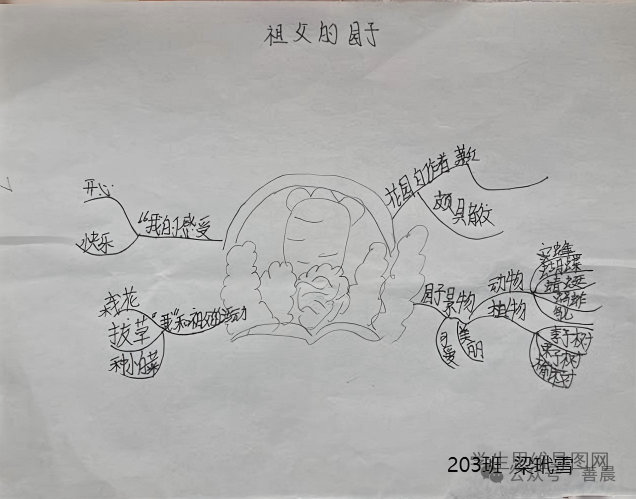 祖父的园子
花园的作者 萧红
颇具散文
开心
快乐
"我的"感受
园子景物
动物
蜜蜂
蜻蜓
蚂蚱
植物
李子树
可爱
美丽
栽花
拔草
种小白菜
"我"和祖父的活动
学生思维导图网
公众号·善晨
203班 梁玳雪